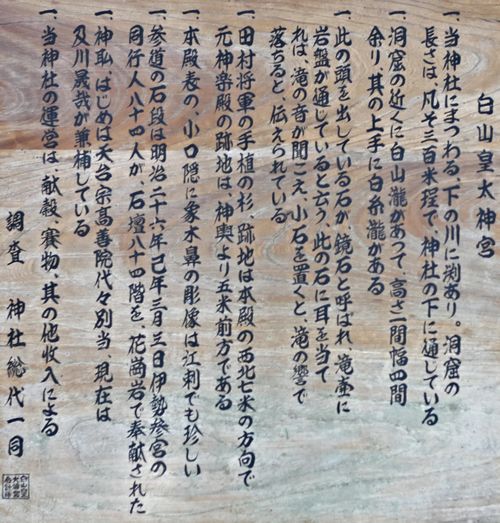 白山皇太神宮
一、当神社にまつわる、下の川に渕あり。洞窟の
長さは、凡そ三百米程で、神社の下に通している
一、洞窟の近くに白山瀧があって、高さ二間幅四間
余り、其の上手に白糸瀧がある
一、此の頭を出している石が、鏡石と呼ばれ、滝壷に
岩盤が通していると云う、此の石に耳を当て
れば、滝の音が聞こえ、小石を置くと、滝の響で
落ちると、伝えられている
一、田村将軍の手植の杉、跡地は本殿の西北七米の方向で
元神楽殿の跡地は、神輿より五米前方である
一、本殿表の、小口隠に象木鼻の彫像は江刺でも珍しい
一、参道の石段は明治二十六年己年三月三日伊勢参宮の
同行人八十四人が、石壇八十四階を、花崗岩で奉献された
一、神恥、はじめは天台宗高善院代々別当、現在は
及川晟哉が兼補している
一、当神社の運営は、献穀、賽物、其の他収入による
調査　神社総代一同